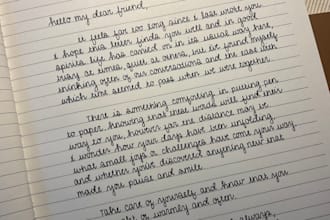 Hello my dear friend,
It feels far too long since I last wrote you.
I hope this letter finds you well and in good
spirits. Life has carried on in its usual way here,
busy at times, quiet at others, but I've found myself
thinking often of our conversations and the ease with
which time seemed to pass when we were together.
There is something comforting in putting pen
to paper, knowing that these words will find their
way to you, however far the distance may be.
I wonder how your days have been unfolding,
what small joys or challenges have come your way
and whether you've discovered anything new that
made you pause and smile.
Take care of yourself and know that you
of warmly and often.
always,